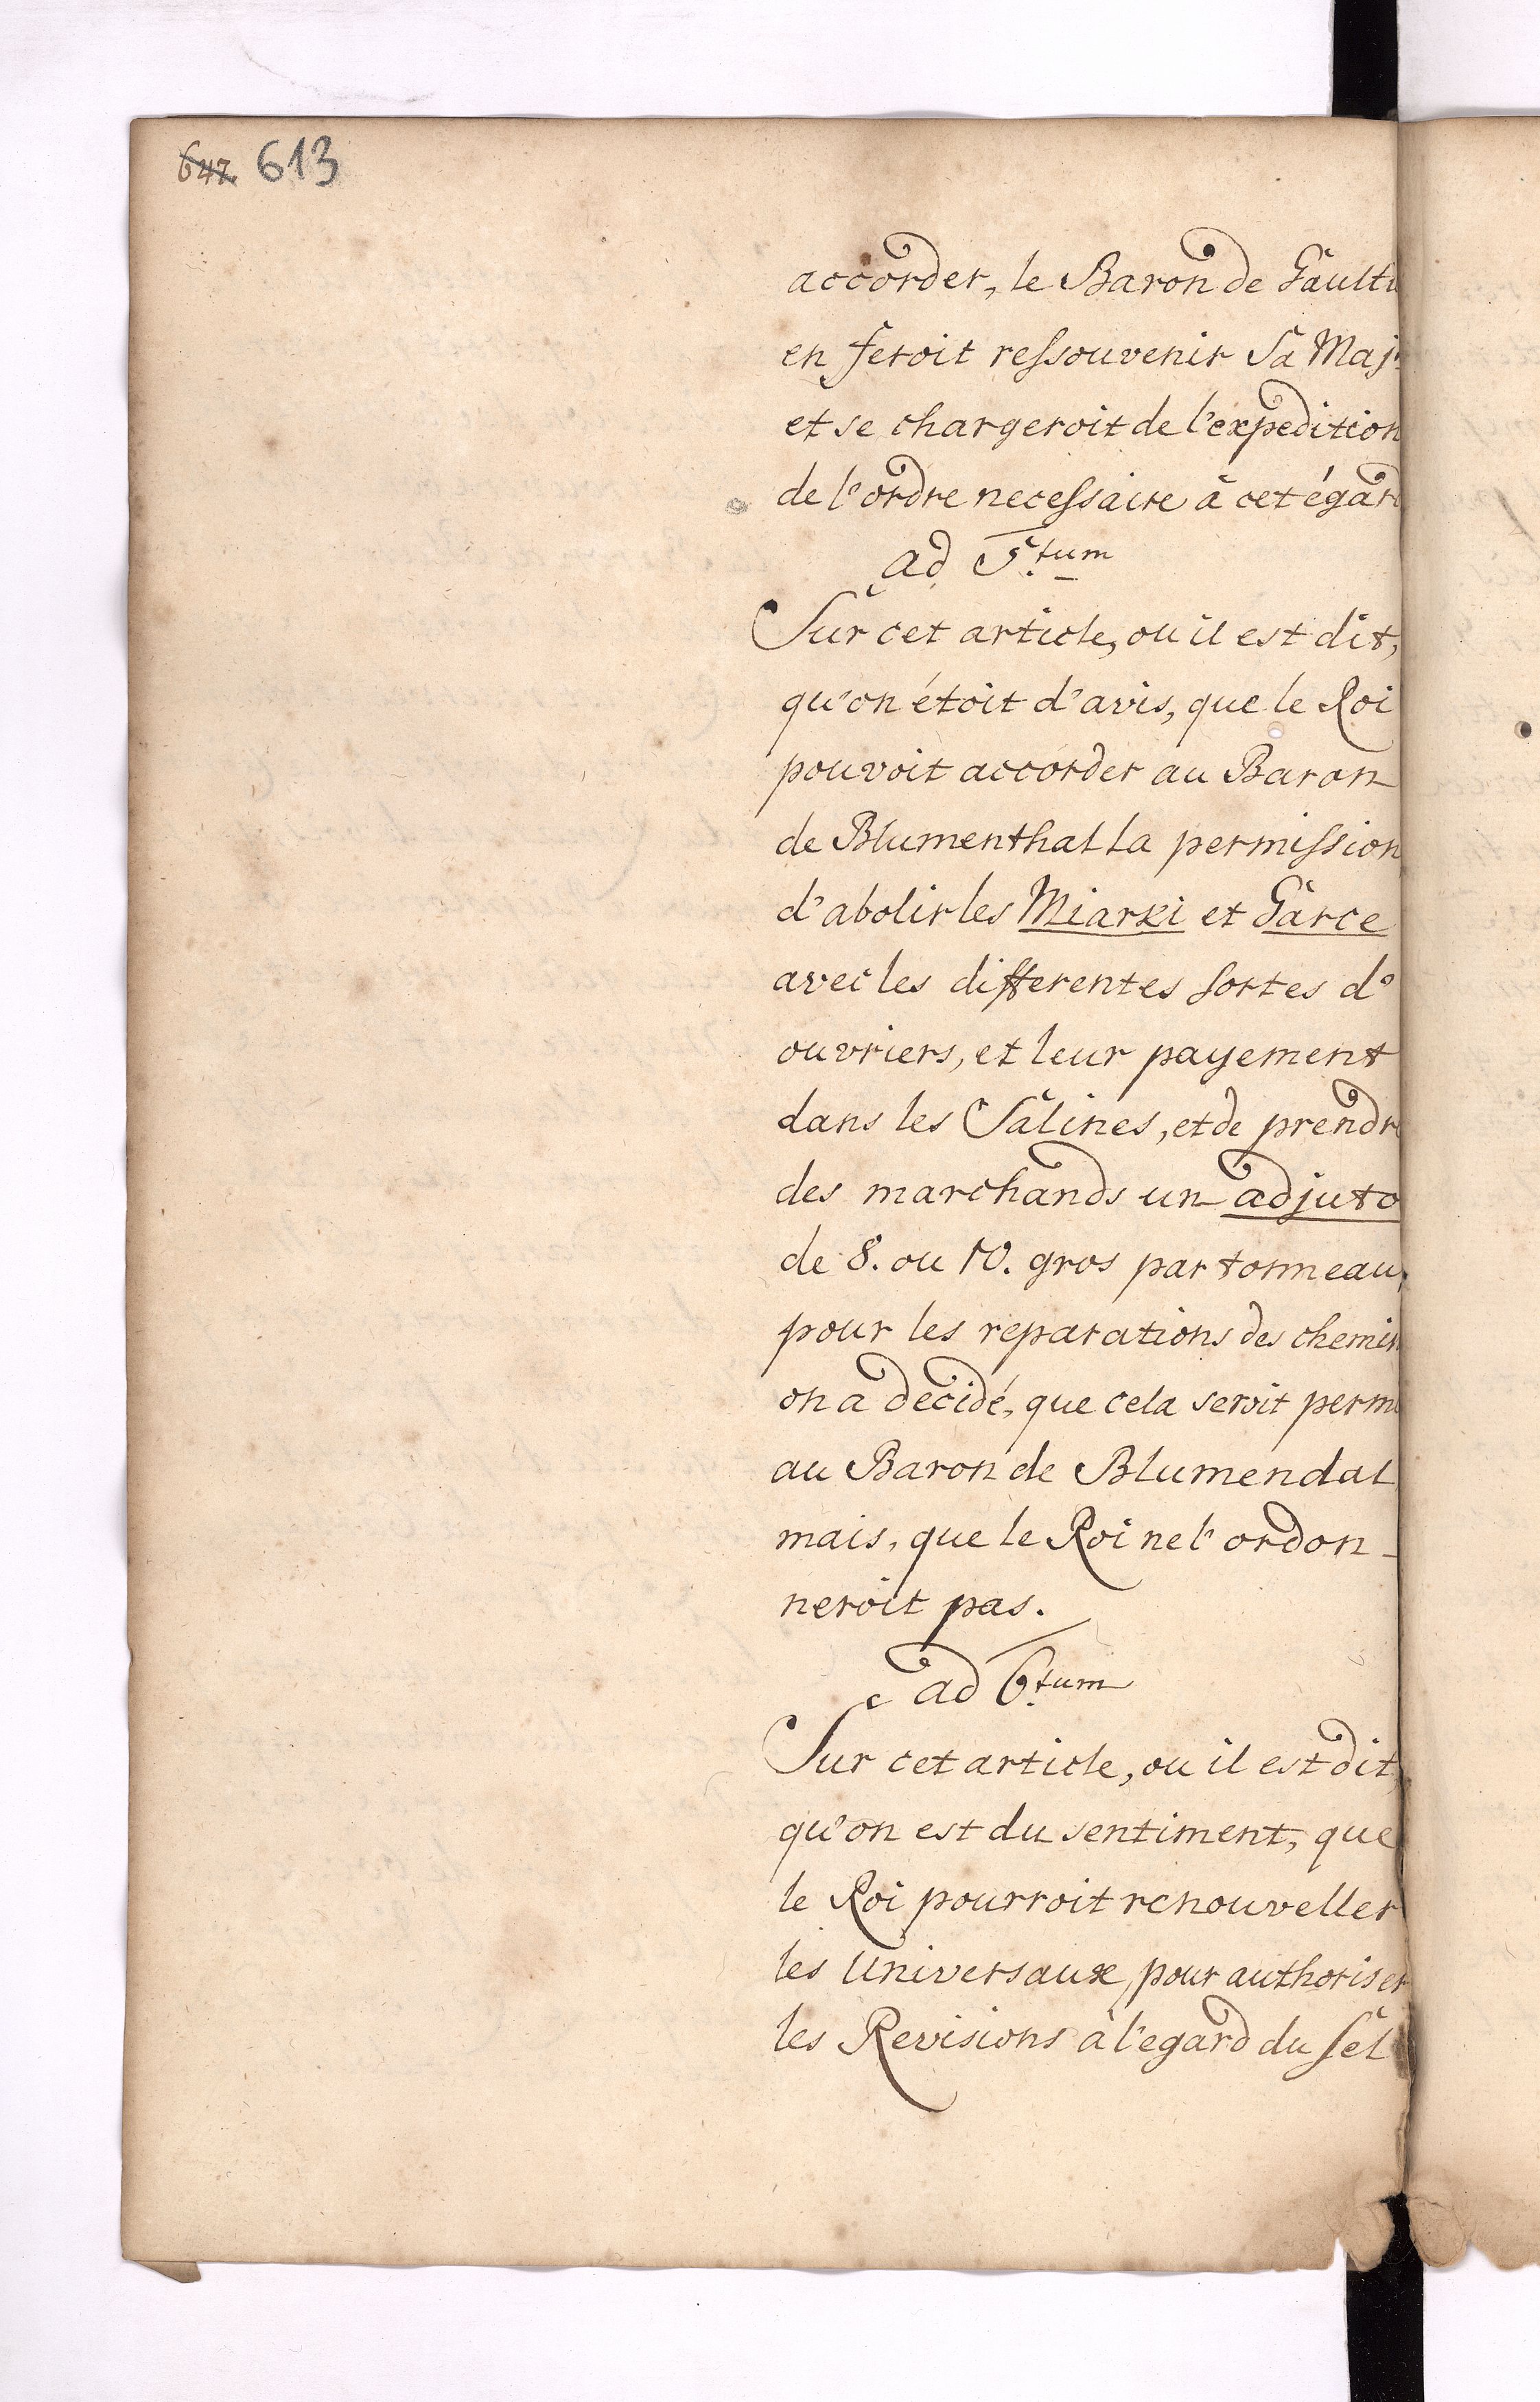 647. 613
accorder, le Baron de Gault
en feroit ressouvenir Sa Maj.
et se chargeroit de l'expedition
de l'ordre necessaire à cet égard
ad 5.tum
Sur cet article, ou il est dit,
qu'on étoit d'avis, que le Roi
pouvoit accorder au Baron
de Blumenthal la permission
d'abolir les Miarki et Garce
avec les differentes sortes d'
ouvriers, et leur payement
dans les Salines, et de prendr
des marchands un adjuto
de 8. ou 10. gros par tonneau,
pour les reparations des chemin
on a decidé, que cela seroit permi
au Baron de Blumendal
mais, que le Roi ne l'ordon-
neroit pas.
ad 6.tum
Sur cet article, ou il est dit,
qu'on est du sentiment, que
le Roi pourroit renouveller
les Universaux, pour authoriser
les Revisions à l'egard du Sel